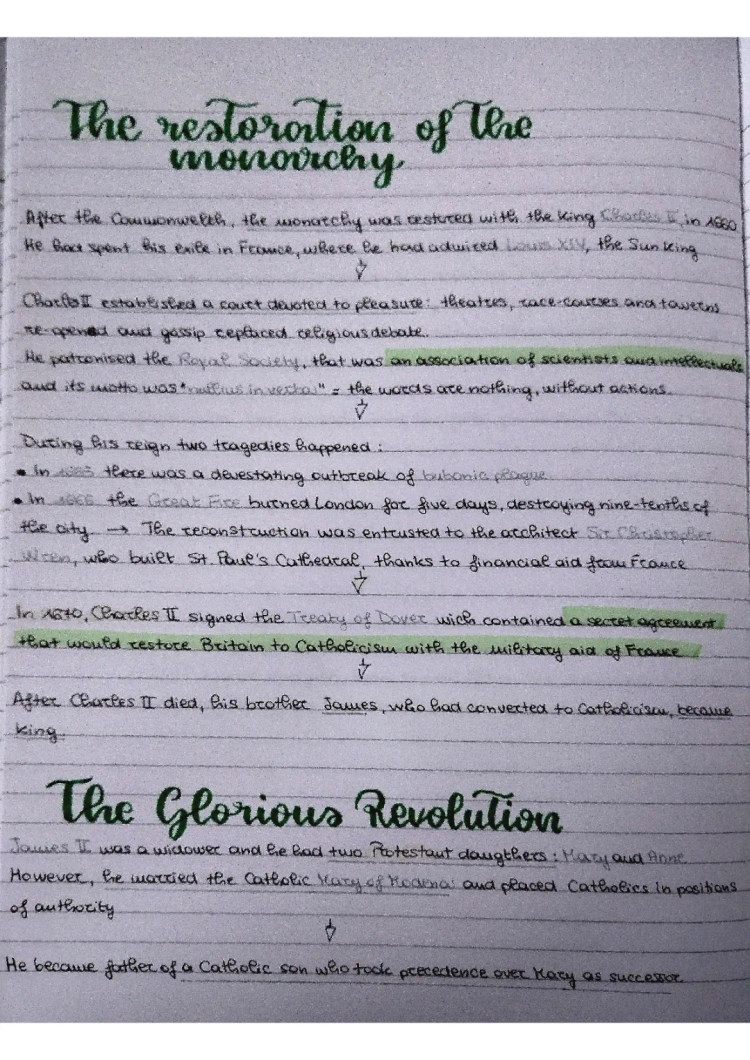 The restoration of the
monarchy
After the Commonwelth, the monarchy was restored with the king Charles II, in 1660
He had spent his exile in France, where he had admired Louis XIV, the Sun King
Charles II established a court devoted to pleasure: theatres, race-courses and taverns
re-opened and gossip replaced religious debate.
He patronised the Royal Society, that was an association of scientists and intellectuals
and its motto was "nullius in verba" = the words are nothing, without actions.
During his reign two tragedies happened:
• In there was a devestating outbreak of bubonic plague
• In 1666 the Great Fire burned London for five days, destroying nine-tenths of
the city → The reconstruction was entrusted to the architect Sir Christopher
Wren, who built St. Paul's Cathedral, thanks to financial aid from France
In 1670, Charles II signed the Treaty of Dover wich contained a secret agreement
that would restore Britain to Catholicism with the military aid of France
After Charles II died, his brother James, who had converted to Catholicism, became
king.
The Glorious Revolution
James II was a widower and he had two Protestant daugthers: Mary and Anne
However, he married the Catholic Mary of Modena and placed Catholics in positions
of authority
He became father of a Catholic son who took precedence over Mary as successor